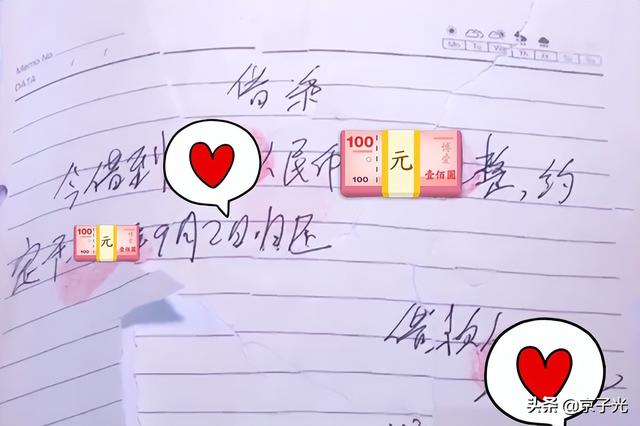 Memo No
Mo Tu We Th Fr Sa Su
DATA / /
借条
今借到 人民币 100 元 博爱 壹佰圆 100 整,约
定于 100 元 壹佰圆 100 年9月2日归还
借款人
头条 @京子光